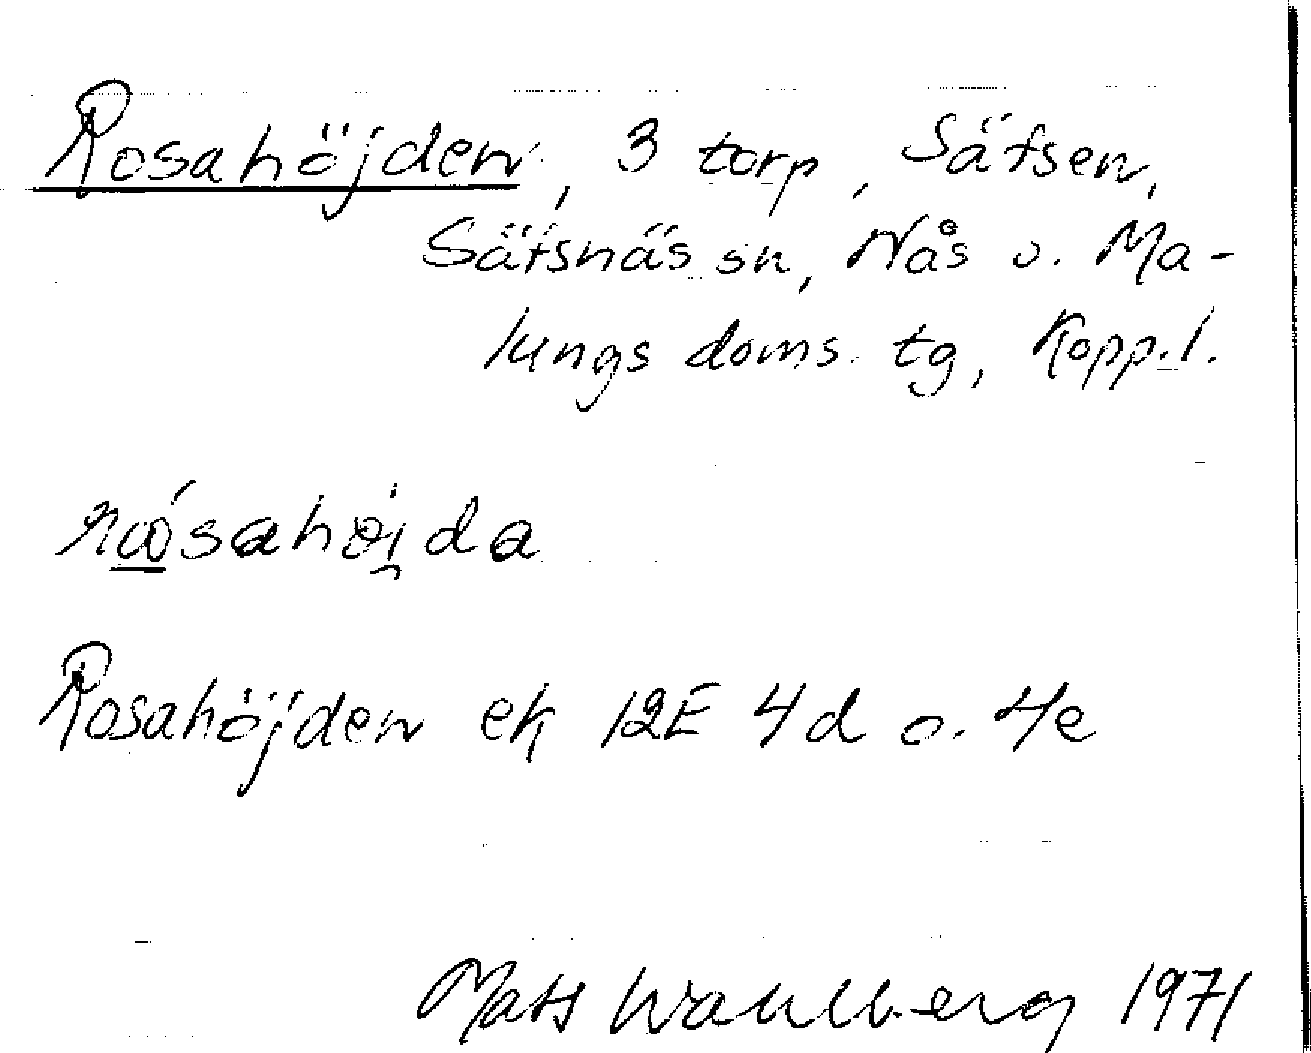 Rosahöjden, 3 torp, Säfsen,
Säfsnäs sn, Nås o. Ma-
lungs doms. tg, Kopp.l.
rώsahøi̯da
Rosahöjden ek 12E 4d o. 4e
Mats Wahlberg 1971